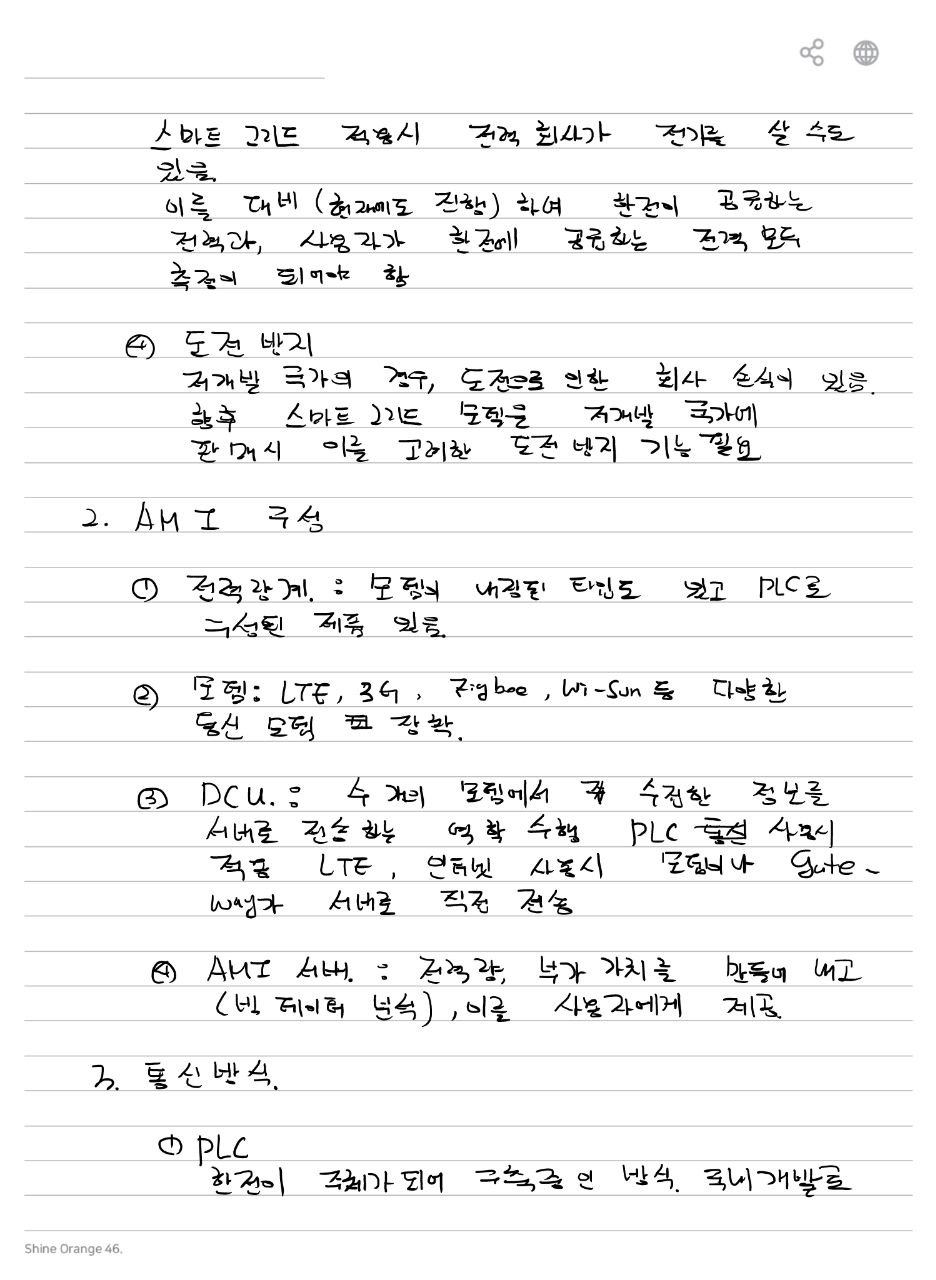 스마트 그리드 적용시 전력 회사가 전기를 살 수도
있음.
이를 대비 (현재에도 진행) 하여 한전이 공급하는
전력과, 사용자가 한전에 공급하는 전력 모두
측정이 되어야 함
④ 도전 방지
저개발 국가의 경우, 도전으로 인한 회사 손실이 있음.
향후 스마트 그리드 모델을 저개발 국가에
판매시 이를 고려한 도전 방지 기능 필요
2. AMI 구성
① 전력량계. : 모뎀이 내장된 타입도 있고 PLC로
구성된 제품 있음.
② 모뎀: LTE, 3G, Zigbee, Wi-Sun 등 다양한
통신 모뎀 장착.
③ DCU. : 수 개의 모뎀에서 수전한 정보를
서버로 전송하는 역할 수행 PLC 통신 사용시
적용 LTE, 인터넷 사용시 모뎀이나 Gate-
way가 서버로 직접 전송
④ AMI 서버. : 전력량, 부가 가치를 만들어 내고
(빅 데이터 분석), 이를 사용자에게 제공.
3. 통신방식.
① PLC
한전이 주체가 되어 구축중인 방식. 국내개발로
Shine Orange 46.